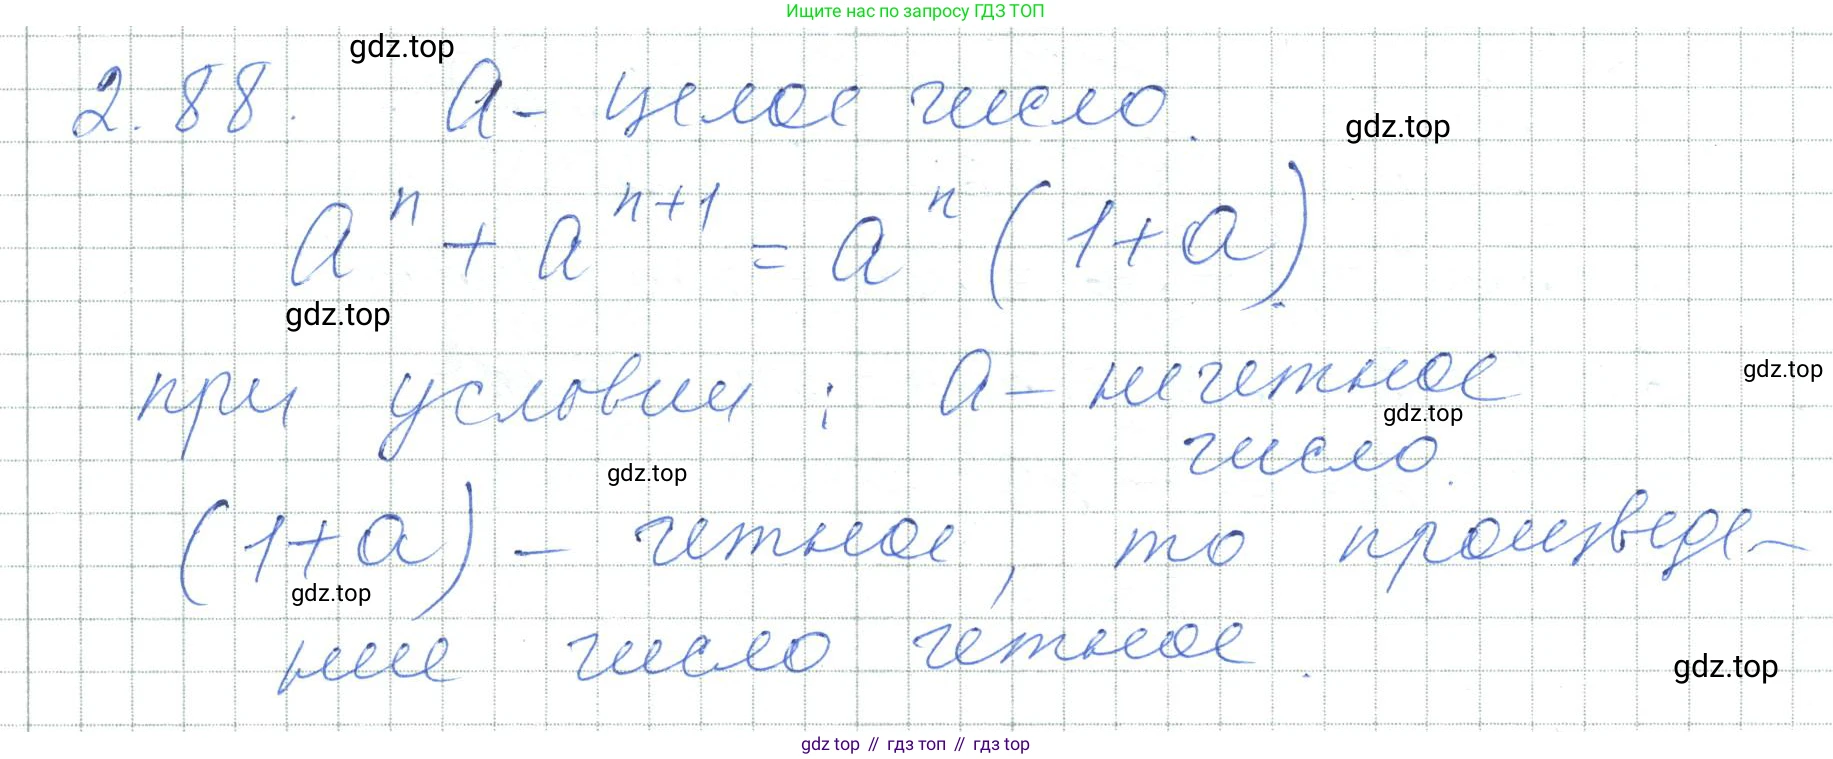 Ищите нас по запросу ГДЗ ТОП
gdz.top
2.88. a - целое число.
gdz.top
aⁿ + aⁿ⁺¹ = aⁿ (1+a)
gdz.top
при условии: a - нечетное
gdz.top
gdz.top
число.
gdz.top
(1+a) - четное, то произведе-
gdz.top
ние число четное.
gdz.top
gdz top // гдз топ // gdz top